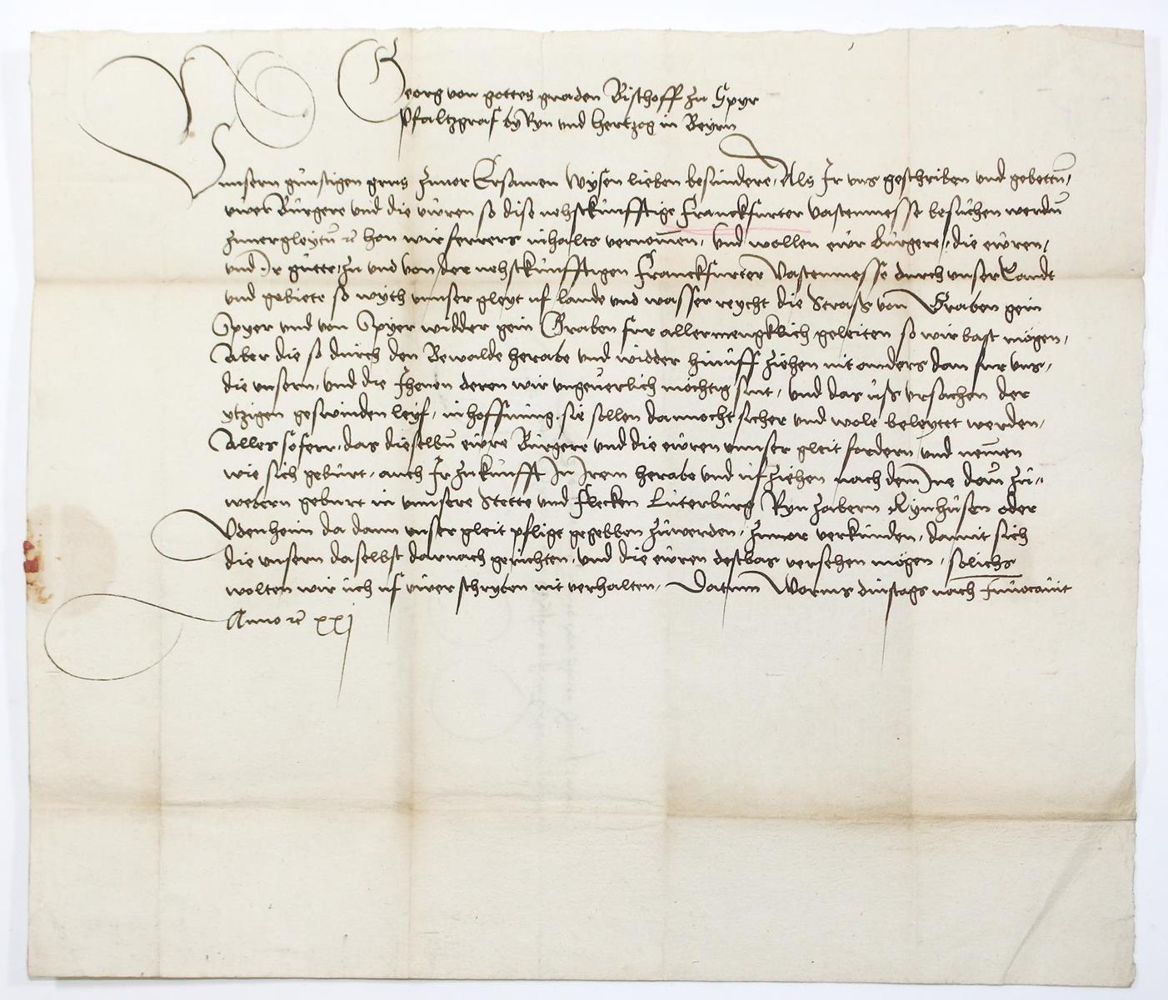 Georg von gottes gnaden Bischoff zu Spyr
Pfaltzgraf by Ryn und hertzog in Beyrn
Unnsern günstigen grus zuuor Ersamen wysen lieben besundere, Als Ir uns geschriben und gebeten,
uwer Bürgere und die uwren so dise nehstkünfftige Franckfurter vastenmesse besuchen werden
zuuergleyten rc hon wir ferrers inhalts vernomen, Und wollen eur burgere, die euren,
und Ir gütter, zu und von der nehstkünfftigen Franckfurter Vastenmesse durch unser Landt
und gebiete so wyth unnser gleyt uf lande und wasser reycht die Strass von Graben gein
Spyer und von Spyer widder gein Graben fur allermengklich geleiten so wir bast mögen,
Aber die so durch den Bewalde herabe und widder hinuff ziehen nit anders dan fur uns,
die unsern, und die Jhenen deren wir ungeuerlich mechtig sint, und das uss ursachen der
ytzigen geswinden leyf, in hoffnung, sie sollen dannocht sicher und wole beleytet werden,
Alles soferr, das dieselben euwre Bürgere und die euren unnser gleit fordern und nemen
wie sich gebürt, auch Ir zukunfft In Irem herabe und uf ziehen nach dem Ine dan zu
webern geburt in unnsere Stette und Flecken Luterburg Ryn zabern Rynhusen oder
Udenheim da dann unser gleit pflige gegebben zuwerden, zuuor verkunden, damit sich
die unsern daselbst darnach gerichten, und die euren destbas versehen mögen, solichs
wolten wir uch uf uwer schryben nit verhalten, Datum Worms dinstags nach Inuocauit
Anno rc xxj